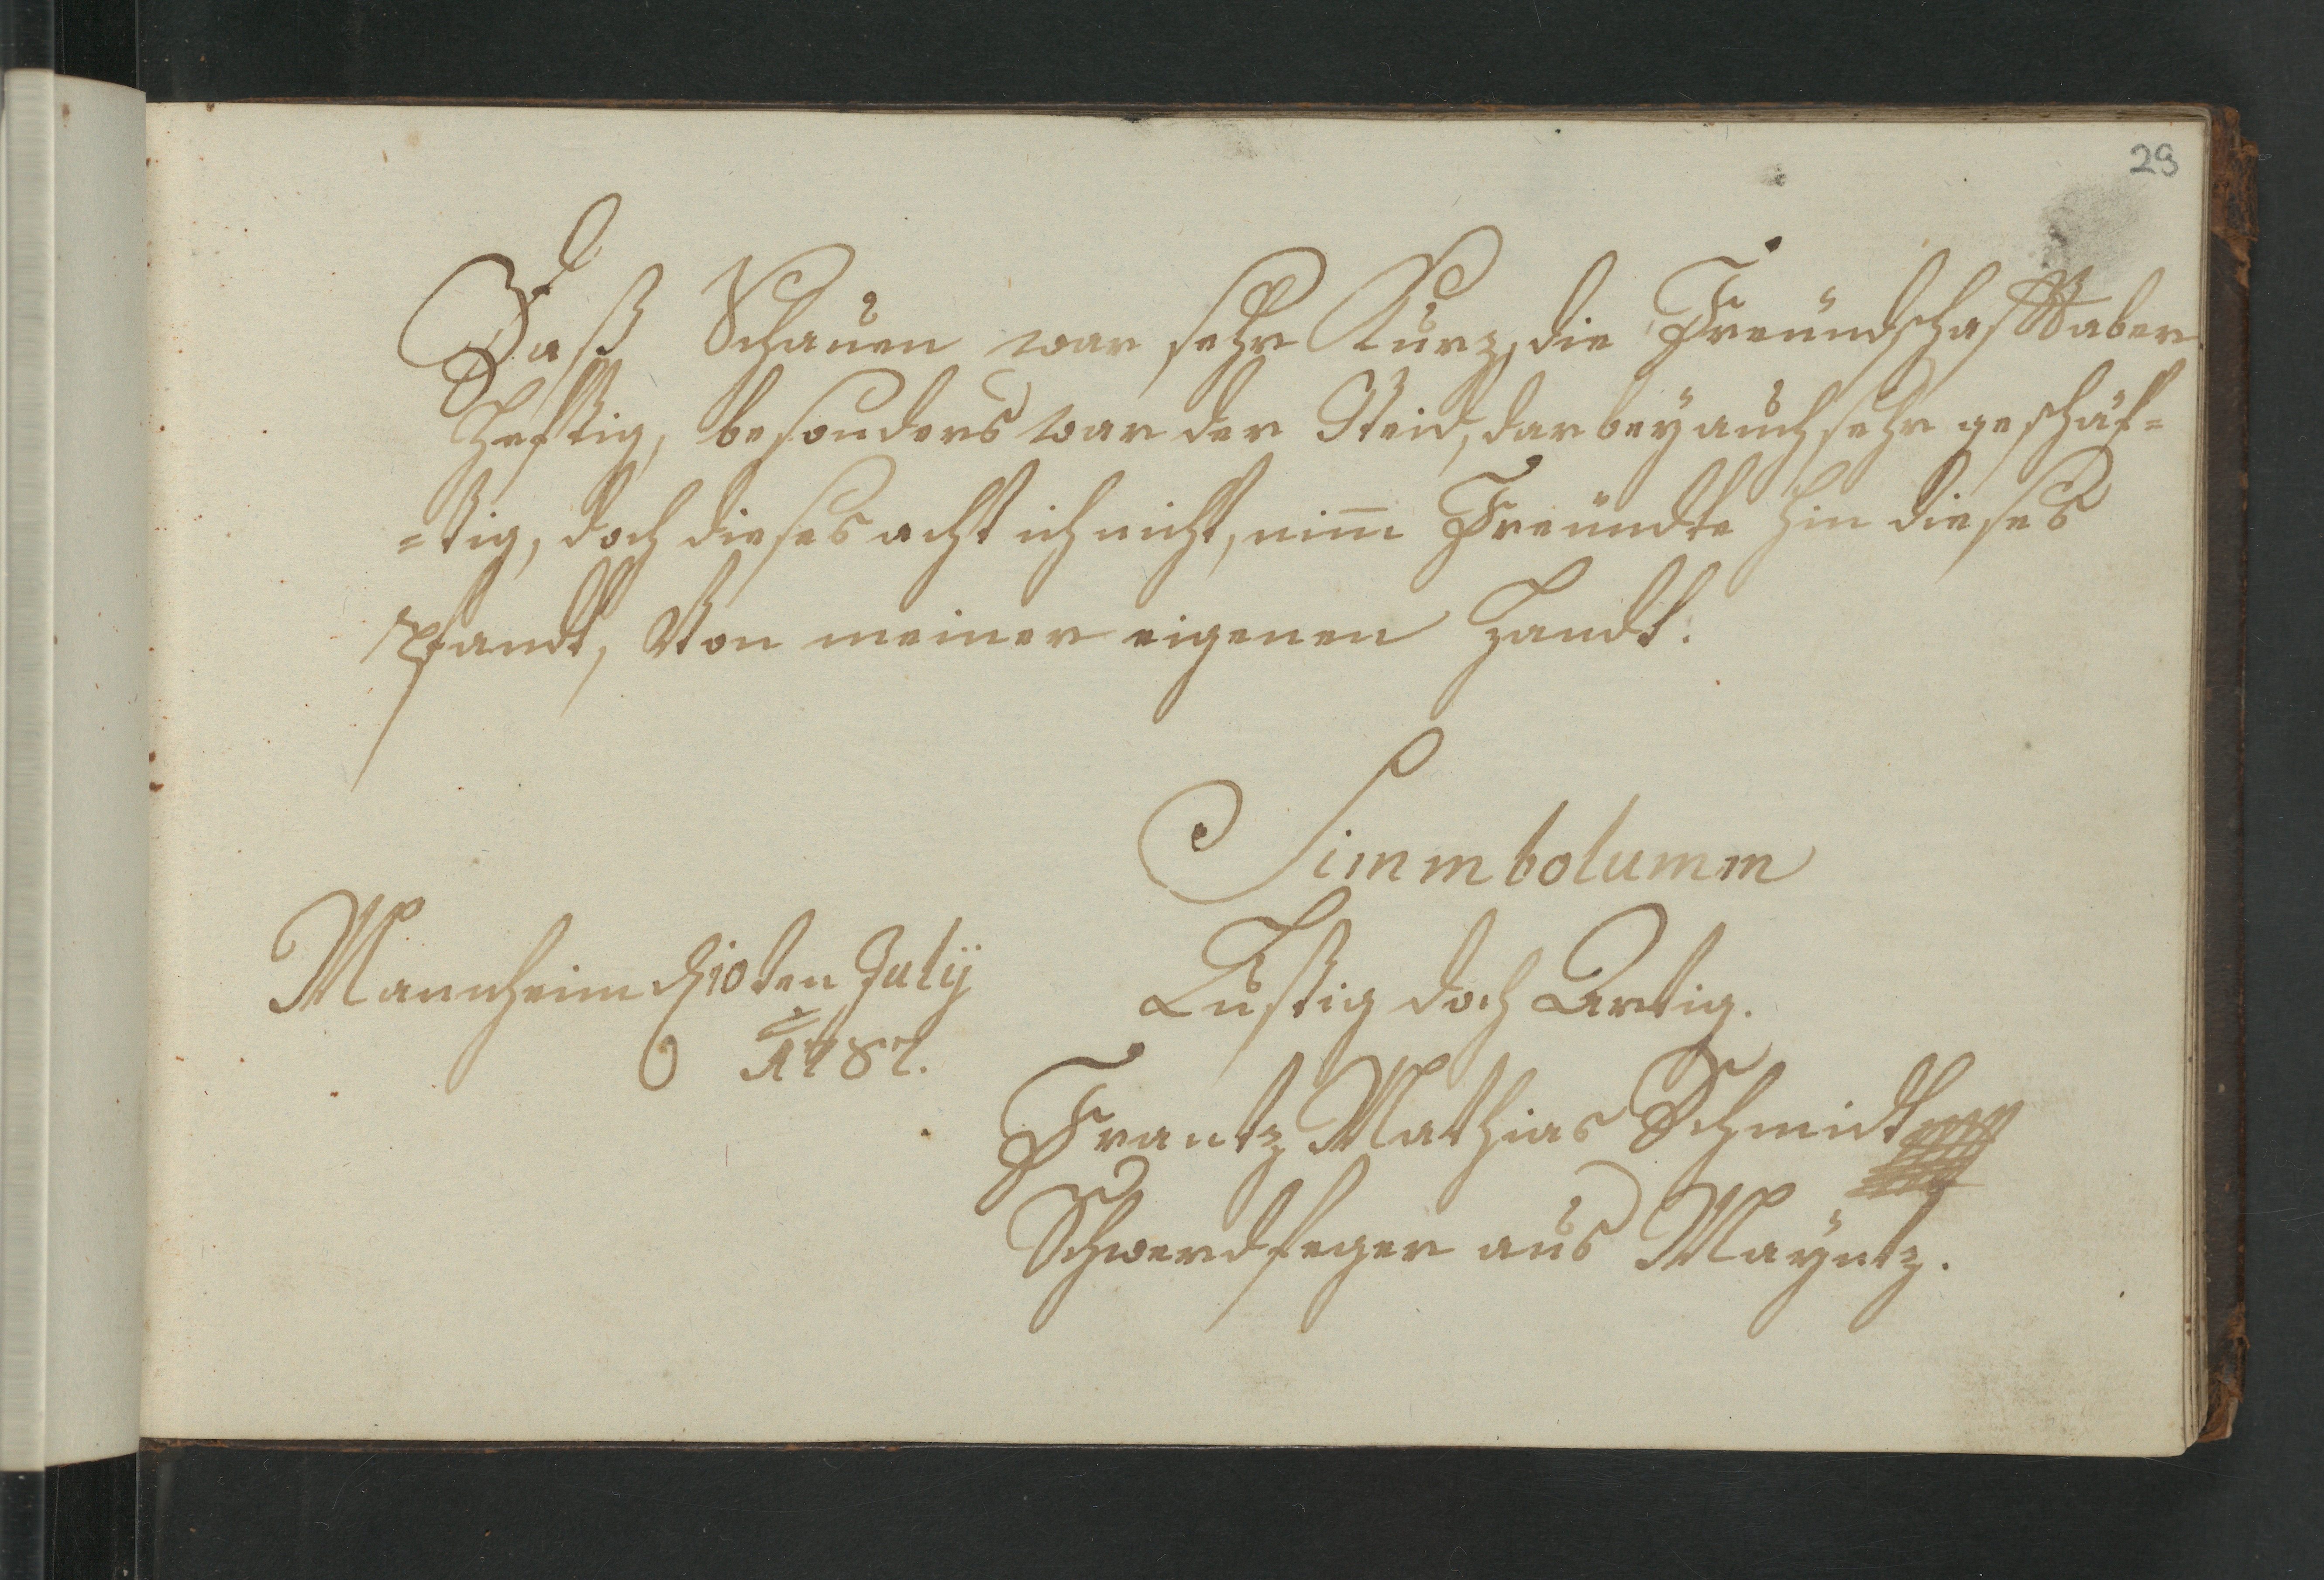 29
Daß Schauen war sehr Kurz, die Freündschafft aber
Hefftig, besonders war der Neid, darbeÿ auch sehr geschäf=
=tig, doch dieses acht ich nicht, nim̅ Freündte hin dieses
Pfandt, Von meiner eigenen Handt.
Simmbolumm
Lustig doch Artig.
Mannheim d 10ten Julij
1787.
Frantz Mathias Schmidt
Schwerdfeger aus Maÿntz.